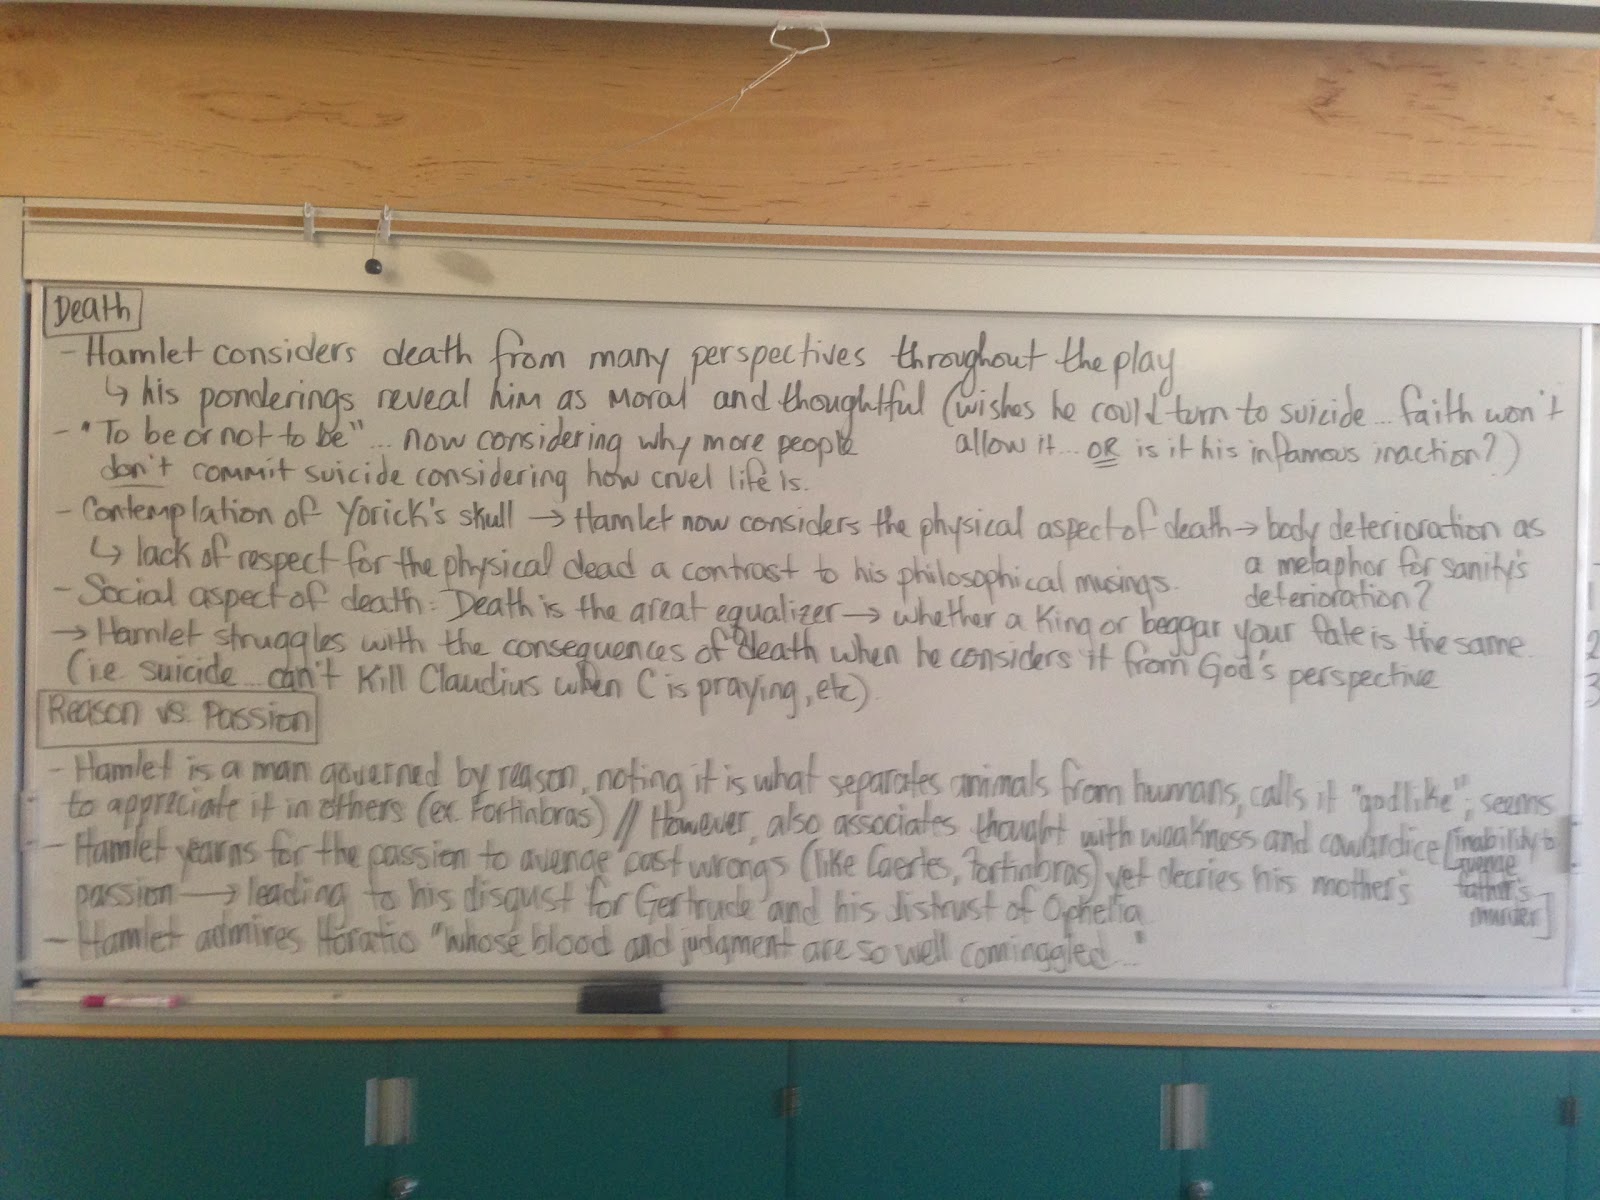 Death
- Hamlet considers death from many perspectives throughout the play
↳ his ponderings reveal him as moral and thoughtful (wishes he could turn to suicide... faith won't
allow it... OR is it his infamous inaction?)
- "To be or not to be"... now considering why more people
don't commit suicide considering how cruel life is.
- Contemplation of Yorick's skull → Hamlet now considers the physical aspect of death → body deterioration as
a metaphor for sanity's
deterioration?
↳ lack of respect for the physical dead a contrast to his philosophical musings.
- Social aspect of death: Death is the great equalizer → whether a King or beggar your fate is the same.
→ Hamlet struggles with the consequences of death when he considers it from God's perspective
(i.e. suicide... can't kill Claudius when C is praying, etc).
Reason vs. Passion
- Hamlet is a man governed by reason, noting it is what separates animals from humans, calls it "godlike"; seems
to appreciate it in others (ex. Fortinbras) // However, also associates thought with weakness and cowardice [inability to
avenge
father's
murder]
- Hamlet yearns for the passion to avenge past wrongs (like Laertes, Fortinbras) yet decries his mother's
passion → leading to his disgust for Gertrude and his distrust of Ophelia
- Hamlet admires Horatio "whose blood and judgment are so well cominggled..."
2
3